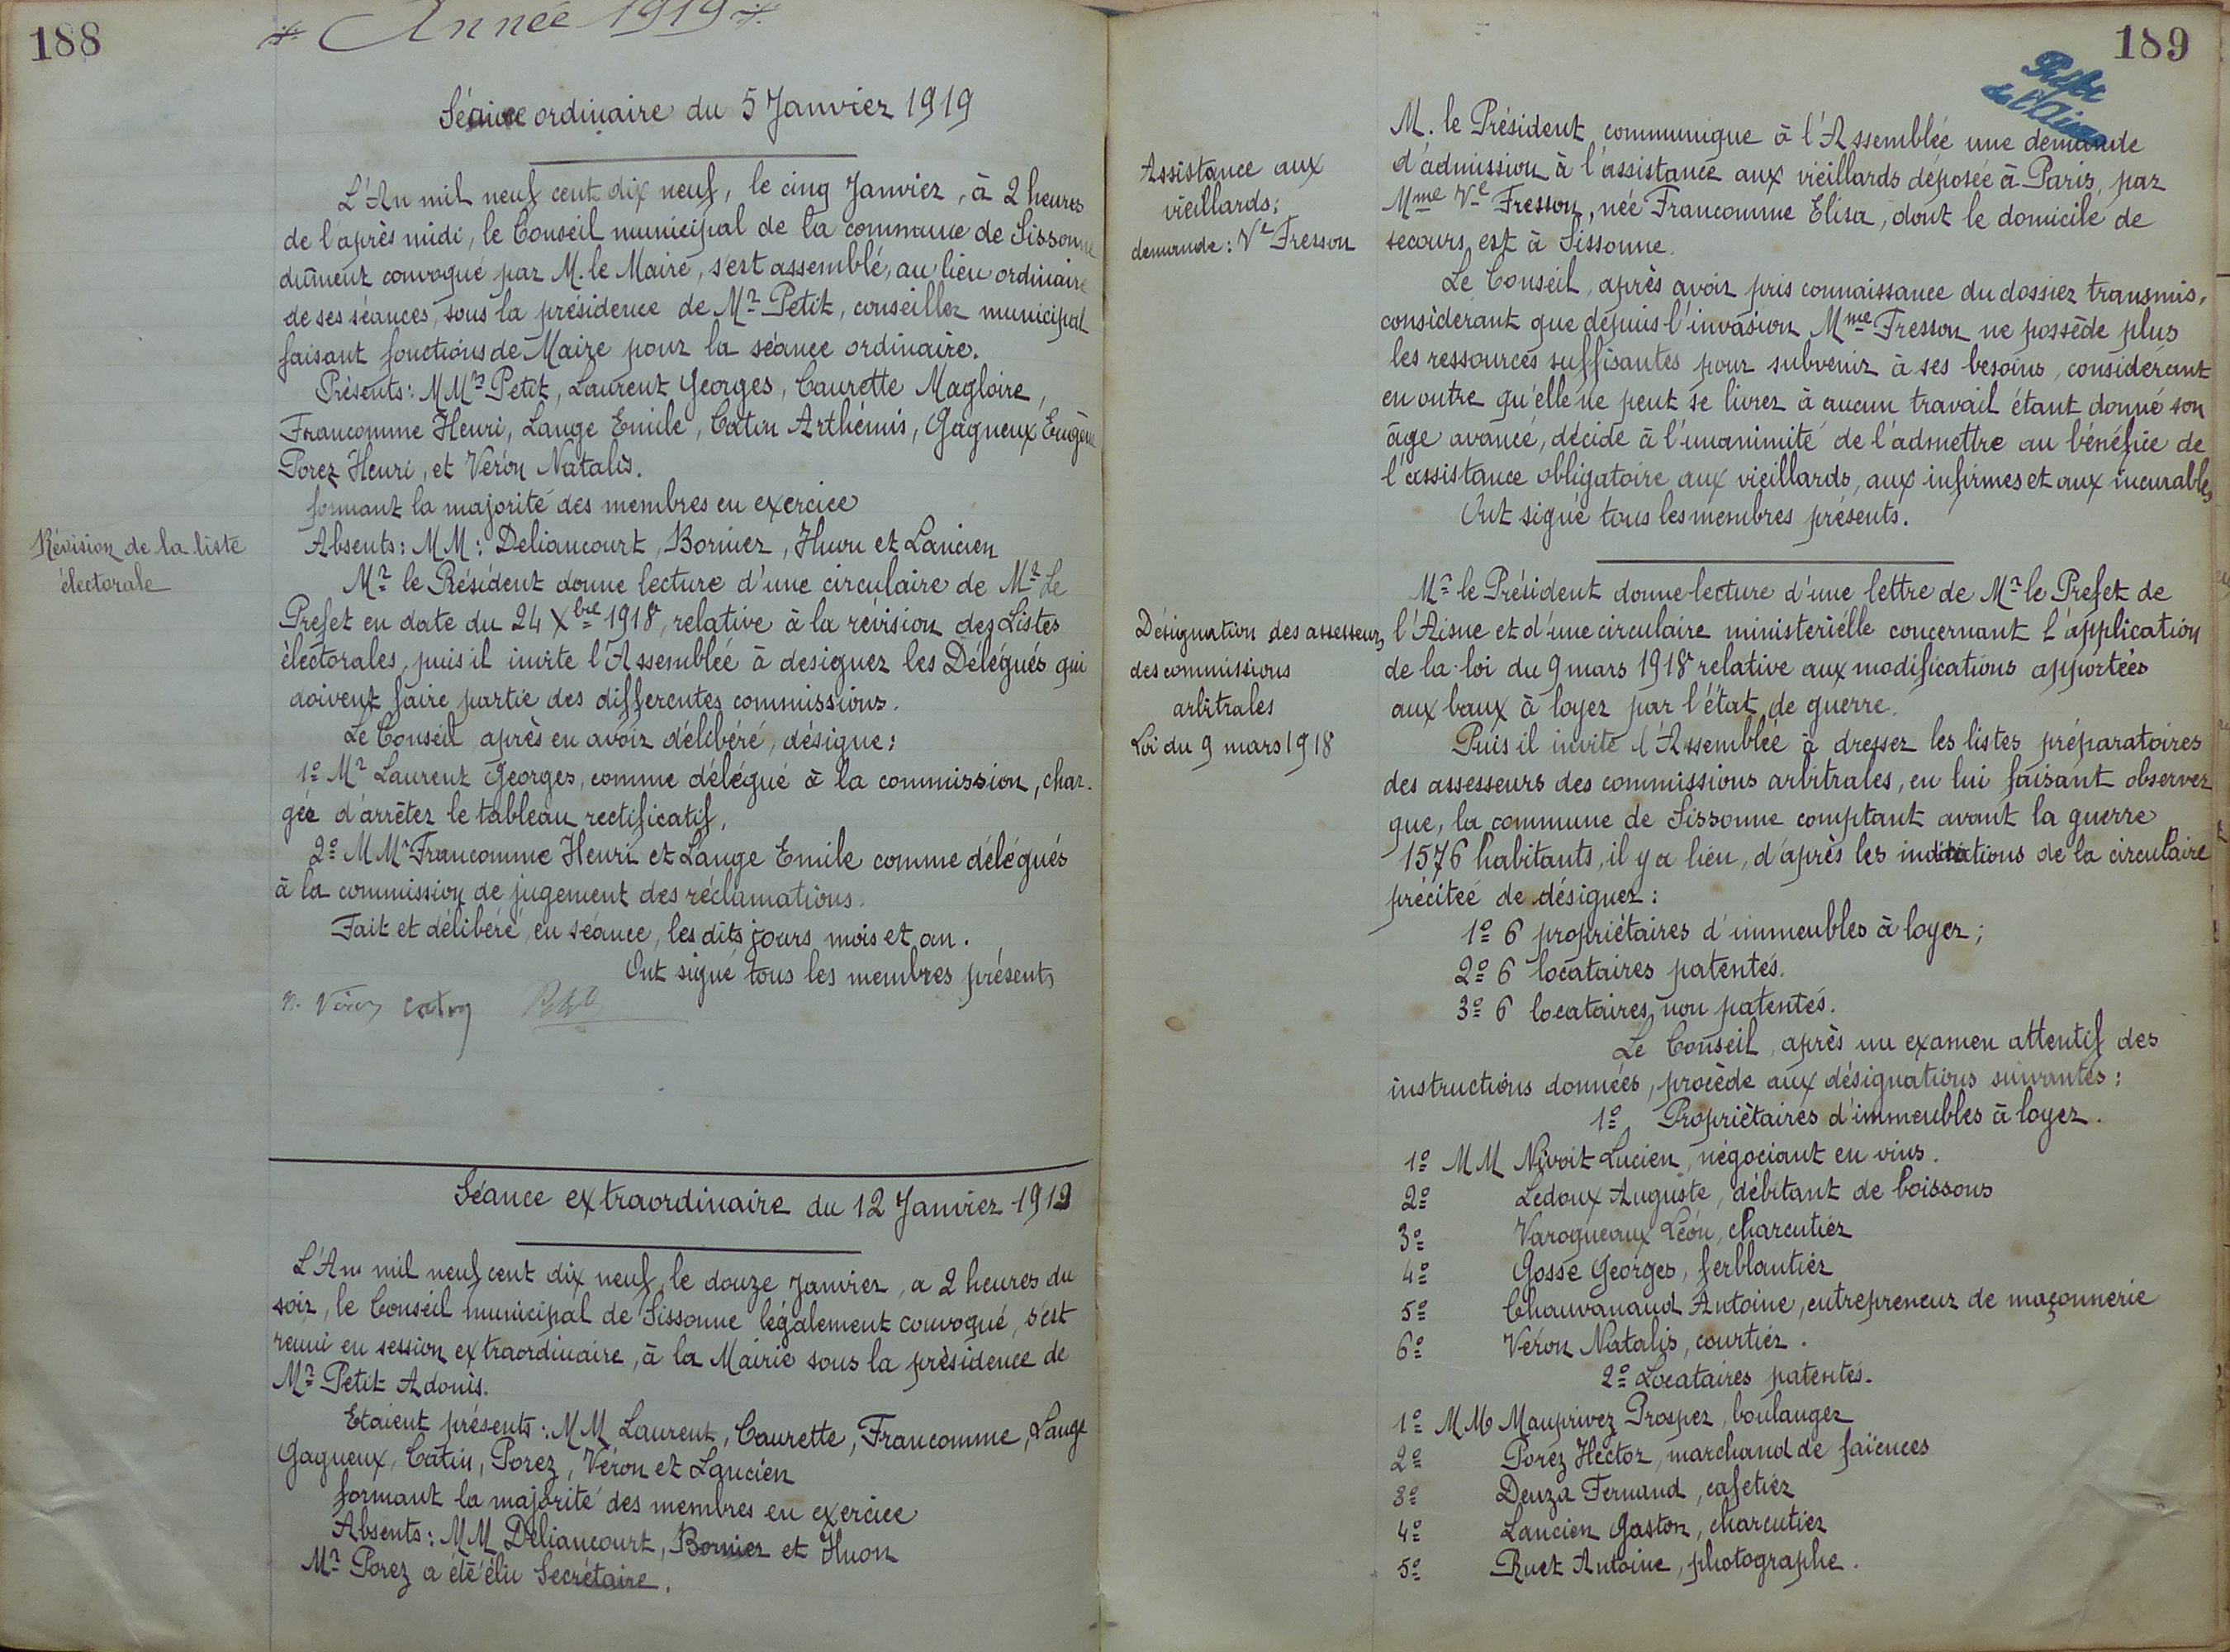 188
Année 1919
Séance ordinaire du 5 Janvier 1919
L'An mil neuf cent dix neuf, le cinq Janvier, à 2 heures
de l'après midi, le Conseil municipal de la commune de Sissonne
dûment convoqué par M. le Maire, s'est assemblé, au lieu ordinaire
de ses séances, sous la présidence de Mr Petit, conseiller municipal
faisant fonctions de Maire pour la séance ordinaire.
Présents: MMrs Petit, Laurent Georges, Caurette Magloire,
Francomme Henri, Lange Emile, Catin Arthémis, Gagneux Eugène
Porez Henri, et Véron Natalis.
formant la majorité des membres en exercice
Absents: MM: Deliancourt, Bornier, Huon et Lancien
Révision de la liste
électorale
Mr le Président donne lecture d'une circulaire de Mr Le
Préfet en date du 24 Xbre 1918, relative à la révision des Listes
électorales, puis il invite l'Assemblée à designer les Délégués qui
doivent faire partie des differentes commissions.
Le Conseil après en avoir délibéré, désigne:
1º Mr Laurent Georges, comme délégué à la commission, char-
gée d'arrêter le tableau rectificatif,
2º MMrs Francomme Henri et Lange Emile comme délégués
à la commission de jugement des réclamations.
Fait et délibéré en séance, les dits jours mois et an.
Ont signé tous les membres présents
N. Véron Catin Petit
Séance extraordinaire du 12 Janvier 1919
L'An mil neuf cent dix neuf, le douze Janvier, a 2 heures du
soir, le Conseil municipal de Sissonne légalement convoqué, s'est
reuni en session extraordinaire, à la Mairie sous la présidence de
Mr Petit Adonis.
Etaient présents: MM Laurent, Caurette, Francomme, Lange
Gagneux, Catin, Porez, Véron et Lancien
formant la majorité des membres en exercice
Absents: MM Deliancourt, Bornier et Huon
Mr Porez a été élu Secrétaire.
189
Préfre
de l'Aisne
Assistance aux
vieillards;
demande: Ve Fresson
M. le Président communique à l'Assemblée une demande
d'admission à l'assistance aux vieillards déposée à Paris, par
Mme Ve Fresson, née Francomme Elisa, dont le domicile de
secours est à Sissonne.
Le Conseil, après avoir pris connaissance du dossier transmis,
considérant que depuis l'invasion Mme Fresson ne possède plus
les ressources suffisantes pour subvenir à ses besoins, considérant
en outre qu'elle ne peut se livrer à aucun travail étant donné son
âge avancé, décide à l'unanimité de l'admettre au bénéfice de
l'assistance obligatoire aux vieillards, aux infirmes et aux incurables
Ont signé tous les membres présents.
Désignation des assesseurs
des commissions
arbitrales
Loi du 9 mars 1918
Mr le Président donne lecture d'une lettre de Mr le Prefet de
l'Aisne et d'une circulaire ministerielle concernant l'application
de la loi du 9 mars 1918 relative aux modifications apportées
aux baux à loyer par l'état de guerre.
Puis il invite l'Assemblée à dresser les listes préparatoires
des assesseurs des commissions arbitrales, en lui faisant observer
que, la commune de Sissonne comptant avant la guerre
1576 habitants, il y a lieu, d'après les indications de la circulaire
précitée de désigner:
1º 6 propriétaires d'immeubles à loyer;
2º 6 locataires patentés.
3º 6 locataires non patentés.
Le Conseil, après un examen attentif des
instructions données, procède aux désignations suivantes:
1º Propriétaires d'immeubles à loyer.
1º MM Nivoit Lucien, négociant en vins.
2º Ledoux Auguste, débitant de boissons
3º Varoqueaux Léon, charcutier
4º Gosse Georges, ferblantier
5º Chauvanaud Antoine, entrepreneur de maçonnerie
6º Véron Natalis, courtier.
2º Locataires patentés.
1º MM Mauprivez Prosper, boulanger
2º Porez Hector, marchand de faïences
3º Denza Fernand, cafetier
4º Lancien Gaston, charcutier
5º Ruet Antoine, photographe.